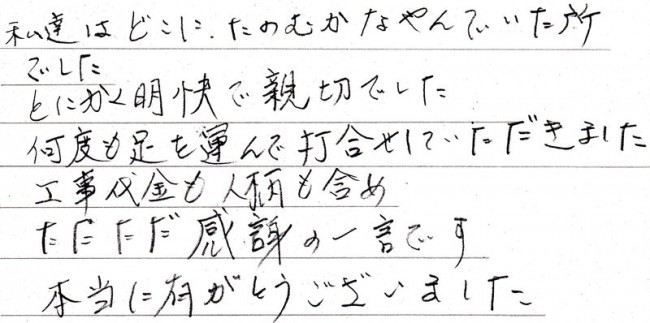 私達はどこに、たのむかなやんでいた所
でした
とにかく明快で親切でした
何度も足を運んで打合せしていただきました
工事代金も人柄も含め
ただただ感謝の一言です
本当に有がとうございました